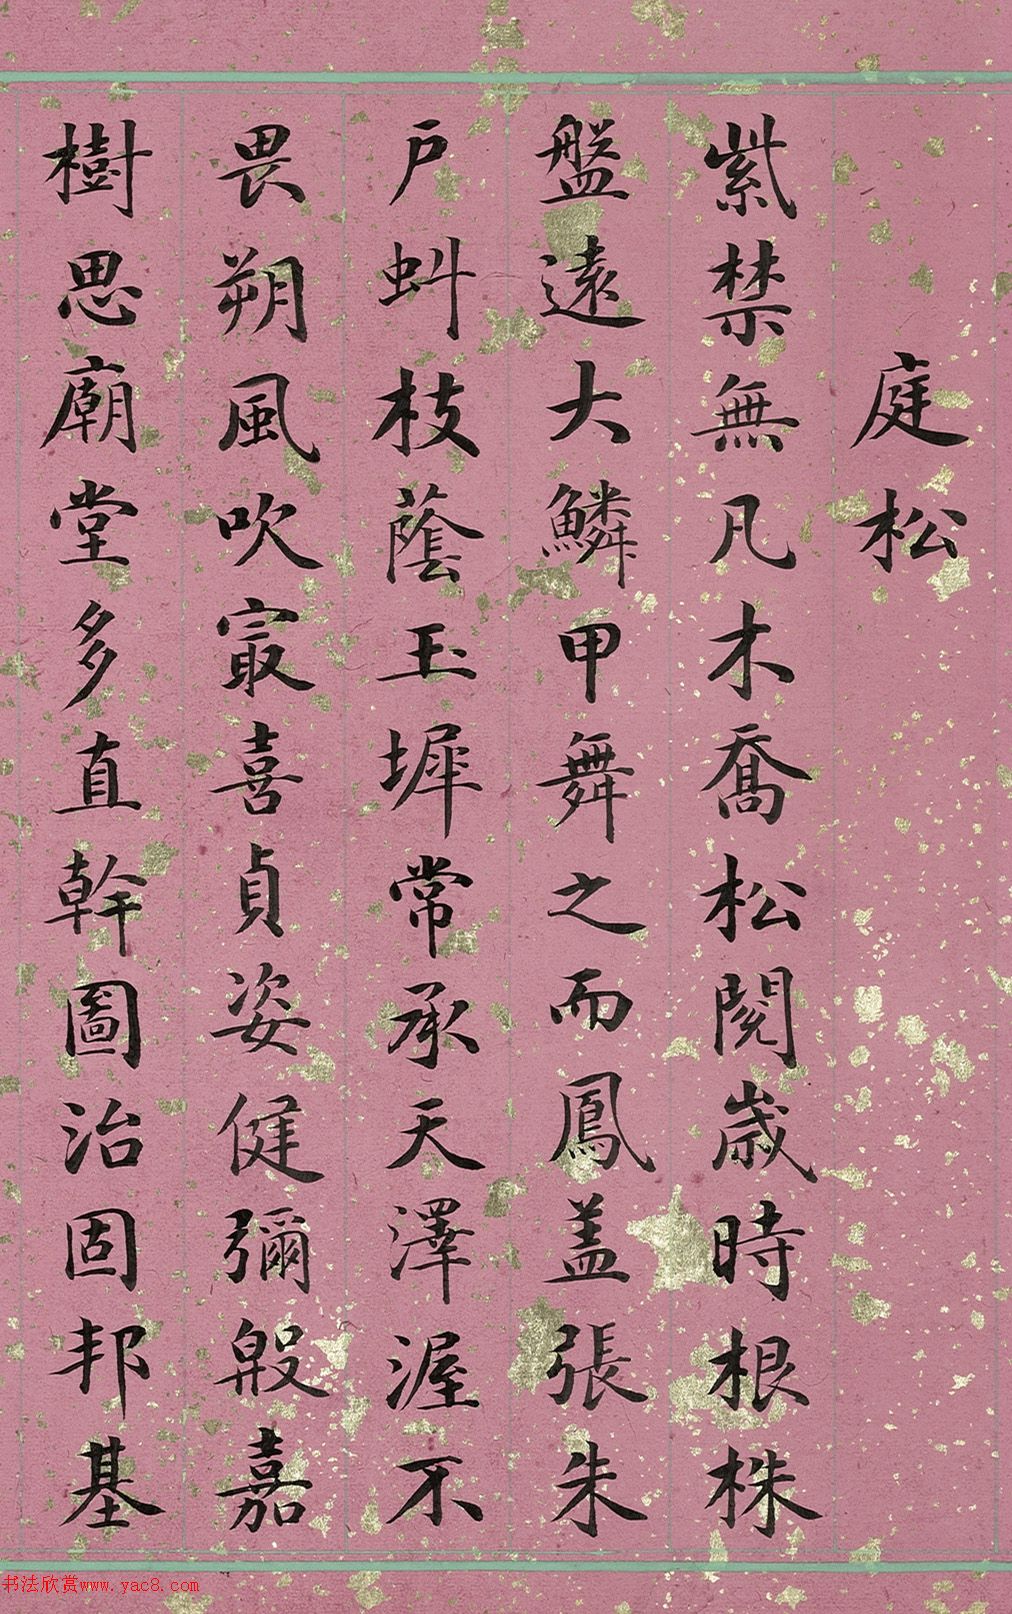 庭松
紫禁無凡木喬松閱歲時根株
盤遠大鱗甲舞之而鳳盖張朱
戶虯枝蔭玉墀常承天澤渥不
畏朔風吹冣喜貞姿健彌殷嘉
樹思廟堂多直幹圖治固邦基
书法欣赏www.yac8.com